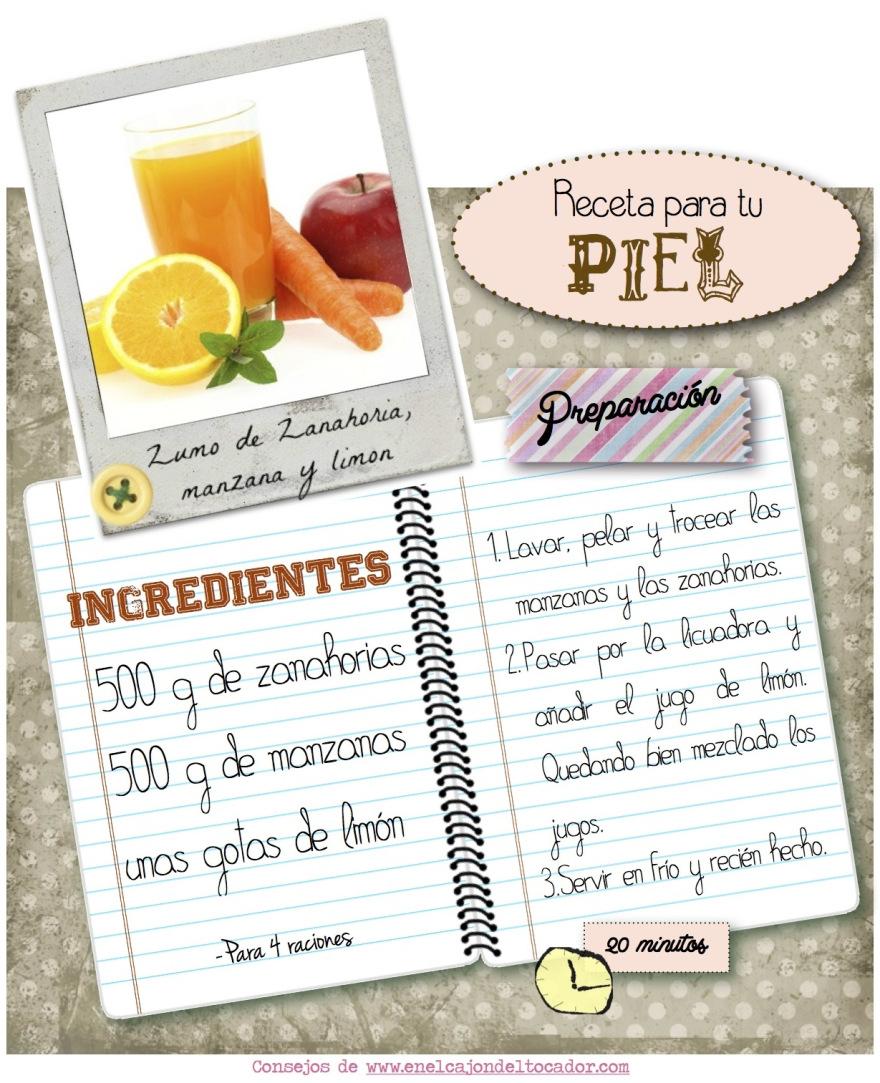 Receta para tu
PIEL
Zumo de Zanahoria,
manzana y limon
INGREDIENTES
500 g de zanahorias
500 g de manzanas
unas gotas de limón
-Para 4 raciones
Preparación
1. Lavar, pelar y trocear las
manzanas y las zanahorias.
2. Pasar por la licuadora y
añadir el jugo de limón.
Quedando bien mezclado los
jugos.
3. Servir en frío y recién hecho.
20 minutos
Consejos de www.enelcajondeltocador.com